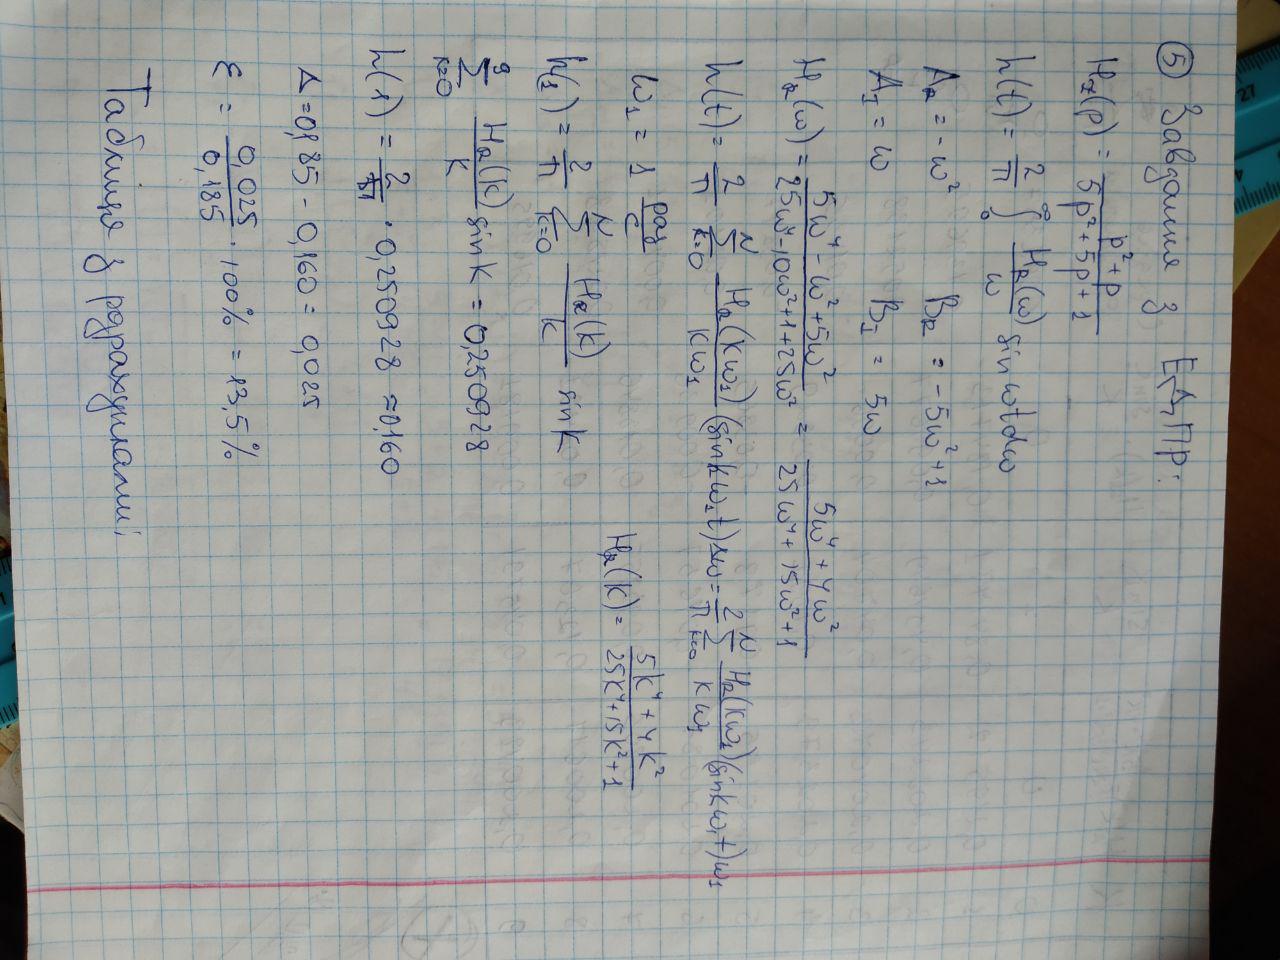 ⑤ Завдання з ЕДПр:
H_I(p) = (p² + p) / (5p² + 5p + 1)
h(t) = 2/π ∫₀^∞ H_R(ω)/ω sinωt dω
A_R = -ω² B_R = -5ω² + 1
A_I = ω B_I = 5ω
H_R(ω) = (5ω⁴ - ω² + 5ω²) / (25ω⁴ - 10ω² + 1 + 25ω²) = (5ω⁴ + 4ω²) / (25ω⁴ + 15ω² + 1)
h(t) = 2/π Σ_{k=0}^{N} H_R(kω₁)/(kω₁) (sinkω₁t)Δω = 2/π Σ_{k=0}^{N} H_R(kω₁)/(kω₁) (sinkω₁t)ω₁
ω₁ = 1 рад/с H_R(k) = (5k⁴ + 4k²) / (25k⁴ + 15k² + 1)
h(1) = 2/π Σ_{k=0}^{N} H_R(k)/k sink
Σ_{k=0}^{9} H_R(k)/k sink = 0,250928
h(1) = 2/π · 0,250928 ≈ 0,160
Δ = 0,185 - 0,160 = 0,025
ε = 0,025/0,185 · 100% = 13,5%
Таблиця з рдрахунками: